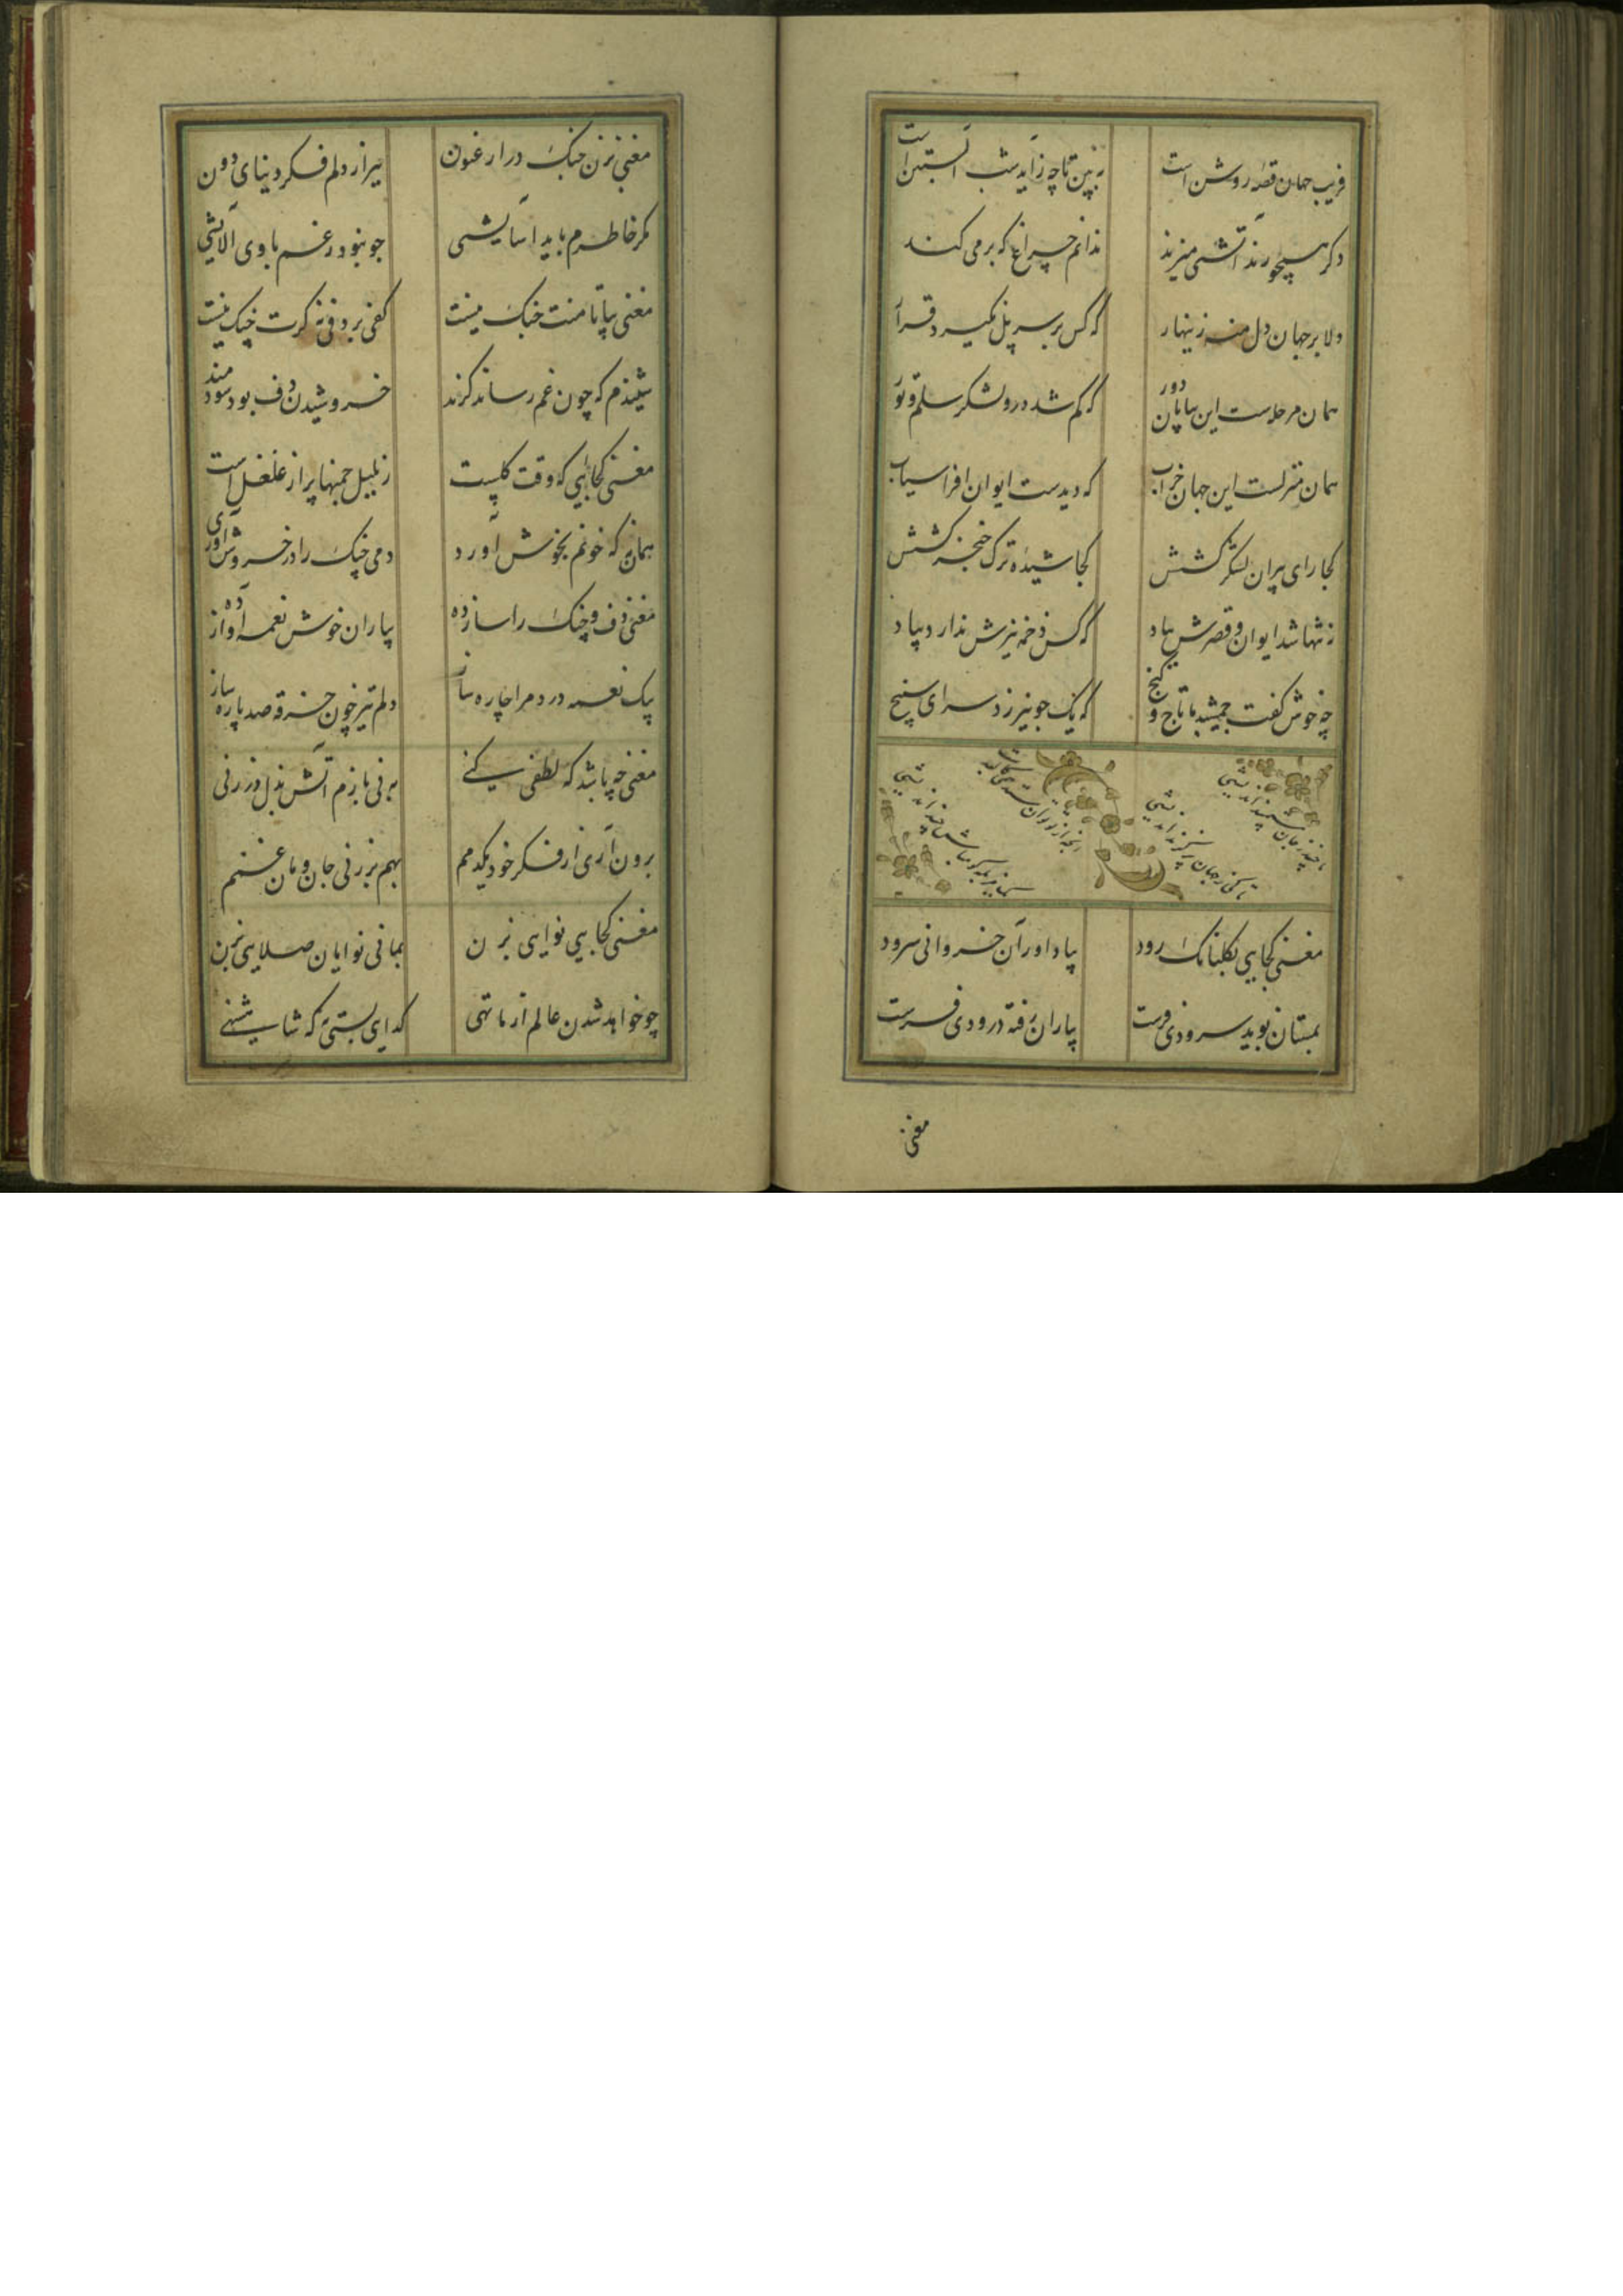 فریب جهان قصهٔ روشن است
ببین تا چه زاید شب آبستن است
دکر هیچو رند آتشی میزند
ندانم چراغ که بر می کند
دلا بر جهان دل منه زینهار
که کس بر سر پل نکیرد قرار
همان مرحله ست این بیابان دور
که کم شد درو لشکر سلم و تور
همان منزلست این جهان خراب
که دیدست ایوان افراسیاب
کجا رای پیران لشکر کشش
کجا شیده ترک خنجر کشش
نه تنها شد ایوان و قصرش بباد
که کس دخمه نیزش ندارد بیاد
چه خوش کفت جمشید با تاج و کنج
که یک جو نیرزد سرای سپنج
مغنی کجایی بکلبانک رود
بیاد اور آن خسروانی سرود
بمستان نوید سرودی فرست
بیاران رفته درودی فرست
مغنی
مغنی بزن چنک در ارغنون
ببر از دلم فکر دنیای دون
مکر خاطرم یابد اسایشی
چو نبود ز غم با وی آلایشی
مغنی بیا با منت جنک نیست
کفی بر دفی نه کرت چنک نیست
شنیدم که چون غم رساند کزند
خروشیدن دف بود سودمند
مغنی کجایی که وقت کلست
ز بلبل چمنها پر از غلغل است
همان به که خونم بجوش آوری
دمی چنک را در خروش آوری
مغنی دف و چنک را ساز ده
بیاران خوش نغمه آواز ده
بیک نغمه درد مرا چاره ساز
دلم نیز چون خرقه صد پاره ساز
مغنی چه باشد که لطفی کنی
بر نی بازم آتش بدل در زنی
برون آری از فکر خود یکدمم
بهم بر زنی جان و مان غمم
مغنی کجایی نوایی بزن
بما بی نوایان صلایی بزن
چو خواهد شدن عالم از ما تهی
کدایی بسی به که شاهنشهی